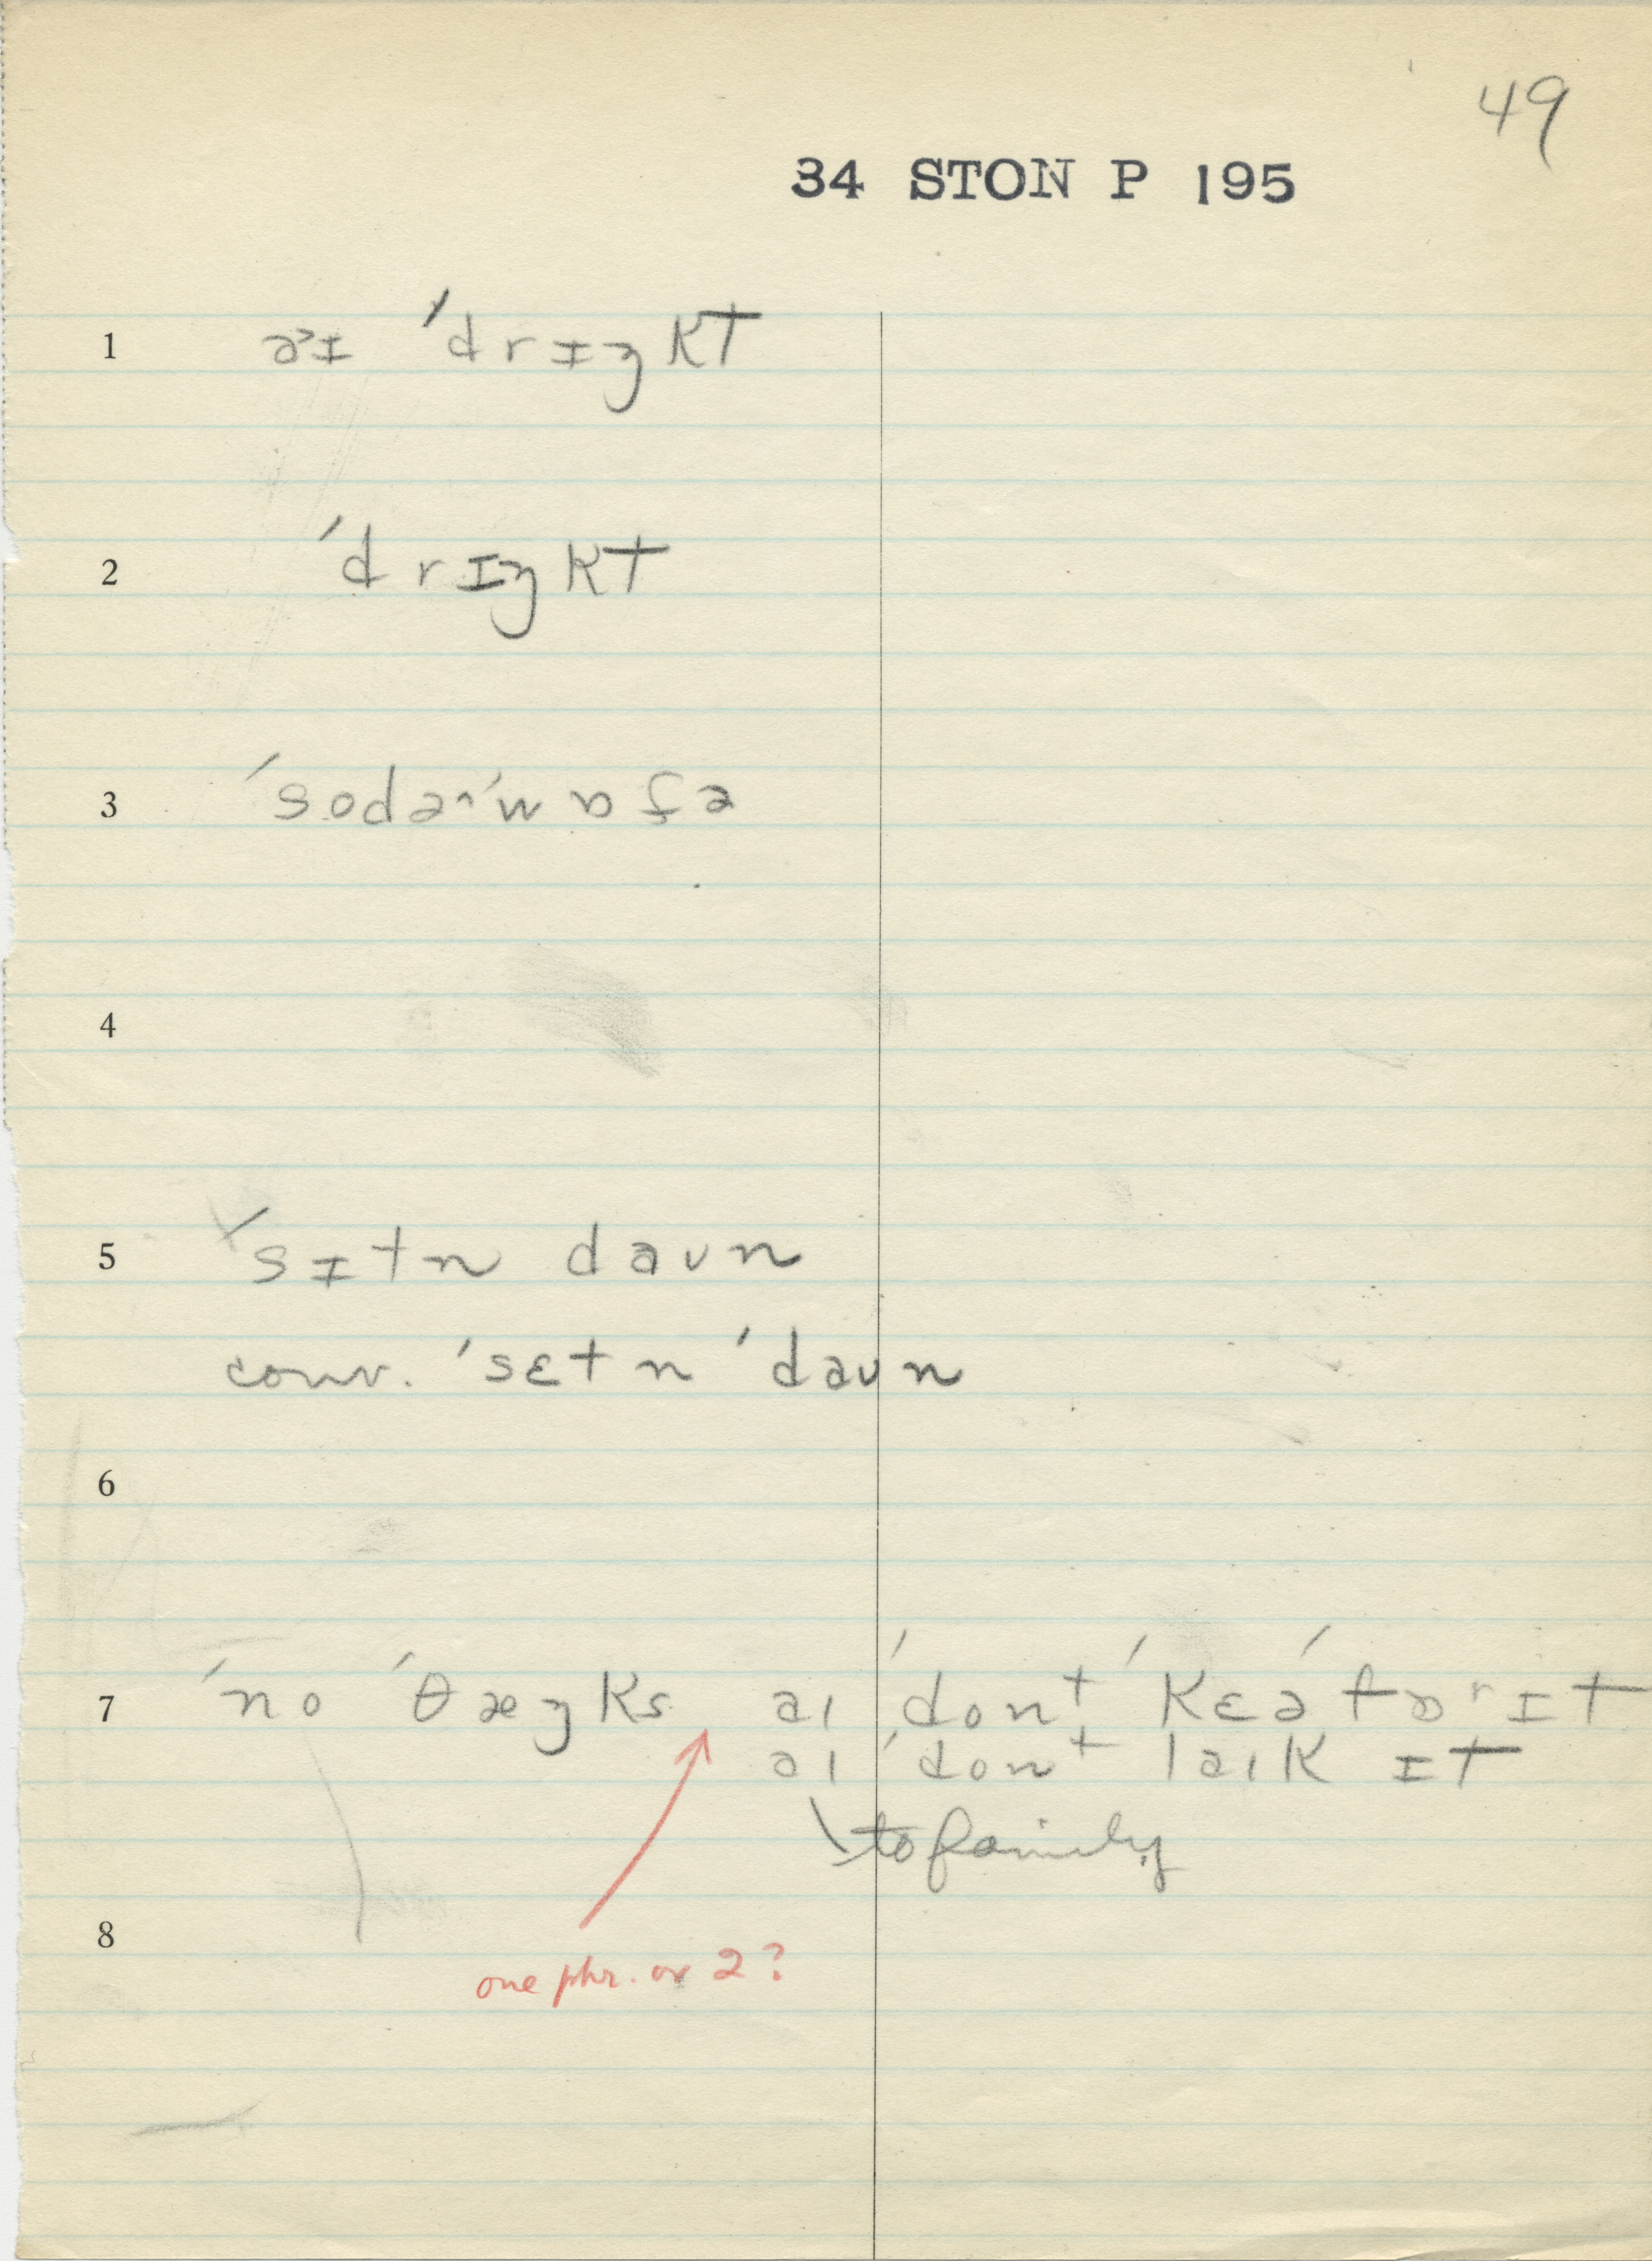 49
34 STON P 195
1 əˠɪ ˈdrɪŋkt
2 ˈdrɪŋkt
3 ˈsodəˈwɒfə
4
5 ˈsɪtn daʊn
conv. ˈsɛtn ˈdaʊn
6
7 ˈno ˈθæŋks aɪ ˈdont ˈkɛəˈfɒʳɪt
aɪ ˈdont laɪk ɪt
to family
8
one phr. or 2?